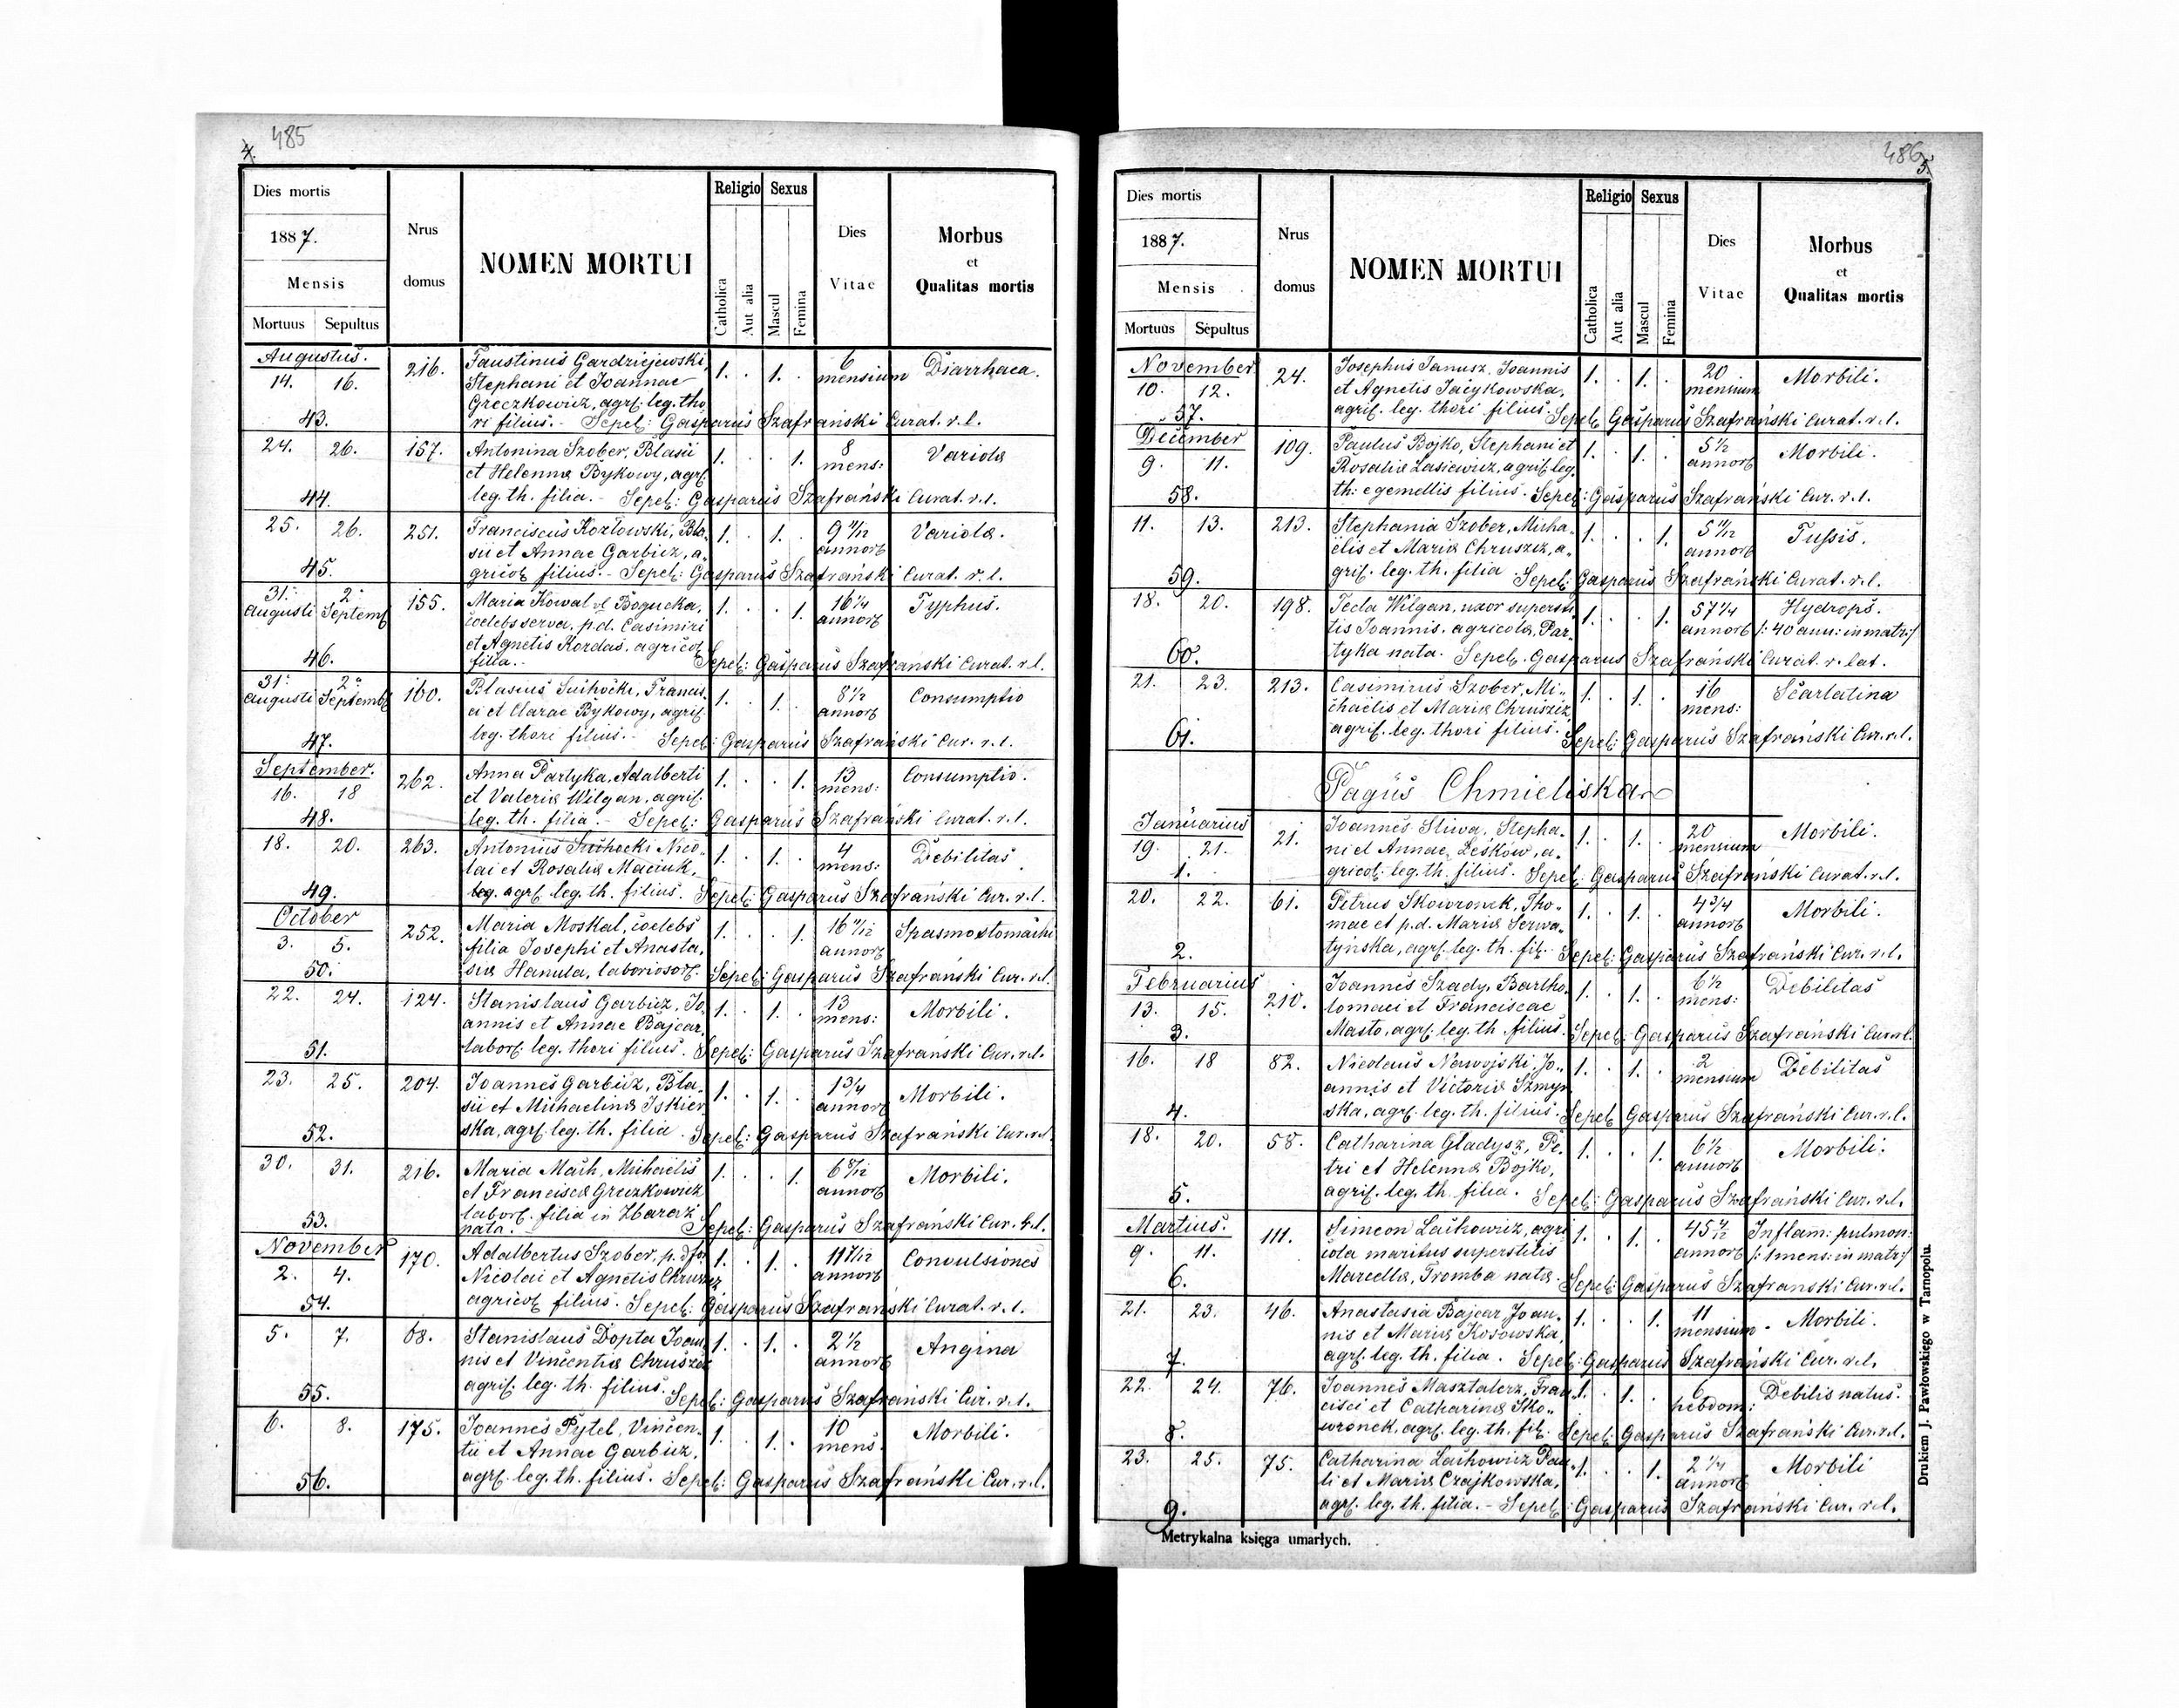 4. 485
Dies mortis
1887.
Mensis
Mortuus Sepultus
Nrus domus
NOMEN MORTUI
Religio
Catholica
Aut alia
Sexus
Mascul
Femina
Dies Vitae
Morbus
et
Qualitas mortis
Augustus.
14. 16. 216. Faustinus Gardziejewski, 1. . 1. . 6 mensium Diarrhaea.
Stephani et Joannae
Greczkowicz, agrf. leg. tho,
43. ri filius. - Sepel: Gasparus Szafrański Curat. r. l.
24. 26. 157. Antonina Szober, Blasii 1. . . 1. 8 mens: Variola
et Helenna Bykowy, agrf.
44. leg. th. filia. - Sepel: Gasparus Szafrański Curat. r. l.
25. 26. 251. Franciscus Kozłowski, Bla, 1. . 1. . 9 11/12 annorb Variola.
sii et Annae Garbicz, a,
45. gricob filius. - Sepel: Gasparus Szafrański Curat. r. l.
31. Augusti 2. Septemb 155. Maria Kowal vl Bogucka, 1. . . 1. 16 1/4 annorb Typhus.
coelebs serva, p.d. Casimiri
et Agnetis Kordas, agricob
46. filia. - Sepel: Gasparus Szafranski Curat. r l.
31. Augusti 2. Septemb 160. Blasius Suchocki, Francis, 1. . 1. . 8 1/2 annorb Consumptio
ci et Clarae Bykowy, agrif.
47. leg. thori filius. - Sepel: Gasparus Szafrański Cur. r. l.
September.
16. 18 262. Anna Partyka, Adalberti 1. . . 1. 13 mens: Consumptio.
et Valeria Wilgan, agrif.
48. leg. th. filia. - Sepel: Gasparus Szafrański Curat. r. l.
18. 20. 263. Antonius Suchocki Nico, 1. . 1. . 4 mens: Debilitas
lai et Rosalia Maciuk,
49. leg. agrf. leg. th. filius. Sepel: Gasparus Szafrański Cur. r. l.
October
3. 5. 252. Maria Moskal, coelebs 1. . . 1. 16 11/12 annorb Spasmostomachi
filia Josephi et Anasta,
50. sia Hanula, laboriosorb. Sepel: Gasparus Szafrański Cur. r. l.
22. 24. 124. Stanislaus Garbicz, Jo, 1. . 1. . 13 mens: Morbili.
annis et Annae Bajcar,
51. laborb. leg. thori filius. Sepel: Gasparus Szafrański Cur. r. l.
23. 25. 204. Joannes Garbicz, Bla, 1. . 1. . 1 3/4 annorb Morbili.
sii et Michaelina Iskier
52. ska, agrf. leg. th. filia. Sepel: Gasparus Szafrański Cur. r. l.
30. 31. 216. Maria Mach, Michaelis 1. . . 1. 6 8/12 annorb Morbili.
et Francisca Greczkowicz
laborb. filia in Zbaraz
53. nata. Sepel: Gasparus Szafrański Cur. r. l.
November
2. 4. 170. Adalbertus Szober, p. dfr. 1. . 1. . 11 7/12 annorb Convulsiones
Nicolai et Agnetis Chruszcz
54. agricob filius. Sepel: Gasparus Szafrański Curat. r. l.
5. 7. 68. Stanislaus Dopta Joan, 1. . 1. . 2 1/2 annorb Angina
nis et Vincentia Chruszcz
55. agrif. leg. th. filius. Sepel: Gasparus Szafrański Cur. r. l.
6. 8. 175. Joannes Pytel, Vincen, 1. . 1. . 10 mens. Morbili.
tii et Annae Garbicz,
56. agrf. leg. th. filius. Sepel: Gasparus Szafrański Cur. r. l.
486 5.
Dies mortis
1887.
Mensis
Mortuus Sepultus
Nrus domus
NOMEN MORTUI
Religio
Catholica
Aut alia
Sexus
Mascul
Femina
Dies Vitae
Morbus
et
Qualitas mortis
November
10. 12. 24. Josephus Janusz, Joannis 1. . 1. . 20 mensium Morbili.
et Agnetis Jacykowska,
57. agrif. leg. thori filius. Sepel: Gasparus Szafrański Curat. r. l.
December
9. 11. 109. Paulus Bojko, Stephani et 1. . 1. . 5 1/2 annorb Morbili.
Rosalia Lasiewicz, agrif. leg.
58. th: e gemellis filius. Sepel: Gasparus Szafrański Cur. r. l.
11. 13. 213. Stephania Szober, Micha, 1. . . 1. 5 11/12 annorb Tussis.
elis et Maria Chruszcz, a,
59. grif. leg. th. filia. Sepel: Gasparus Szafrański Curat. r. l.
18. 20. 198. Tecla Wilgan, uxor supersti 1. . . 1. 57 1/4 annorb Hydrops.
tis Joannis, agricola, Par, /: 40 ann: in matr:/
60. tyka nata. Sepel. Gasparus Szafrański Curat. r. lat.
21. 23. 213. Casimirus Szober, Mi, 1. . 1. . 16 mens: Scarlatina
chaelis et Maria Chruszcz
61. agrif. leg. thori filius. Sepel: Gasparus Szafrański Cur. r. l.
Pagus Chmieliska
Januarius
19. 21. 21. Joannes Sliwa, Stepha, 1. . 1. . 20 mensium Morbili.
ni et Annae Leskow, a,
1. gricob. leg. th. filius. Sepel: Gasparus Szafrański Curat. r. l.
20. 22. 61. Petrus Skowronek, Tho, 1. . 1. . 4 3/4 annorb Morbili.
mae et p.d. Maria Serwa,
2. tyńska, agrf. leg. th. fil. Sepel: Gasparus Szafrański Cur. r. l.
Februarius
13. 15. 210. Joannes Szady, Bartho, 1. . 1. . 6 1/2 mens: Debilitas
lomaei et Franciscae
3. Masto, agrf. leg. th. filius. Sepel: Gasparus Szafrański Cur. r. l.
16. 18 82. Nicolaus Nawojski, Jo, 1. . 1. . 2 mensium Debilitas
annis et Victoria Szmyr
4. ska, agrf. leg. th. filius. Sepel: Gasparus Szafrański Cur. r. l.
18. 20. 58. Catharina Gladysz, Pe, 1. . . 1. 6 1/2 annorb Morbili.
tri et Helenna Bojko,
5. agrif. leg. th. filia. Sepel: Gasparus Szafrański Cur. r. l.
Martius.
9. 11. 111. Simeon Lachowicz, agri 1. . 1. . 45 annorb Inflam: pulmon:
cola maritus superstitis /: 1 mens: in matr:/
6. Marcella, Tromba nata. Sepel: Gasparus Szafranski Cur. r. l.
21. 23. 46. Anastasia Bajcar Joan, 1. . . 1. 11 mensium. Morbili.
nis et Maria Kosowska,
7. agrf. leg. th. filia. Sepel: Gasparus Szafrański Cur. r. l.
22. 24. 76. Joannes Masztalerz, Fran 1. . 1. . 6 hebdom: Debilis natus.
cisci et Catharina Sko,
8. wronek, agrf. leg. th. fil. Sepel: Gasparus Szafrański Cur. r. l.
23. 25. 75. Catharina Lachowicz Pau, 1. . . 1. 2 1/4 annorb Morbili
li et Maria Czajkowska,
9. agrf. leg. th. filia. - Sepel: Gasparus Szafrański Cur. r. l.
Metrykalna księga umarłych.
Drukiem J. Pawłowskiego w Tarnopolu.